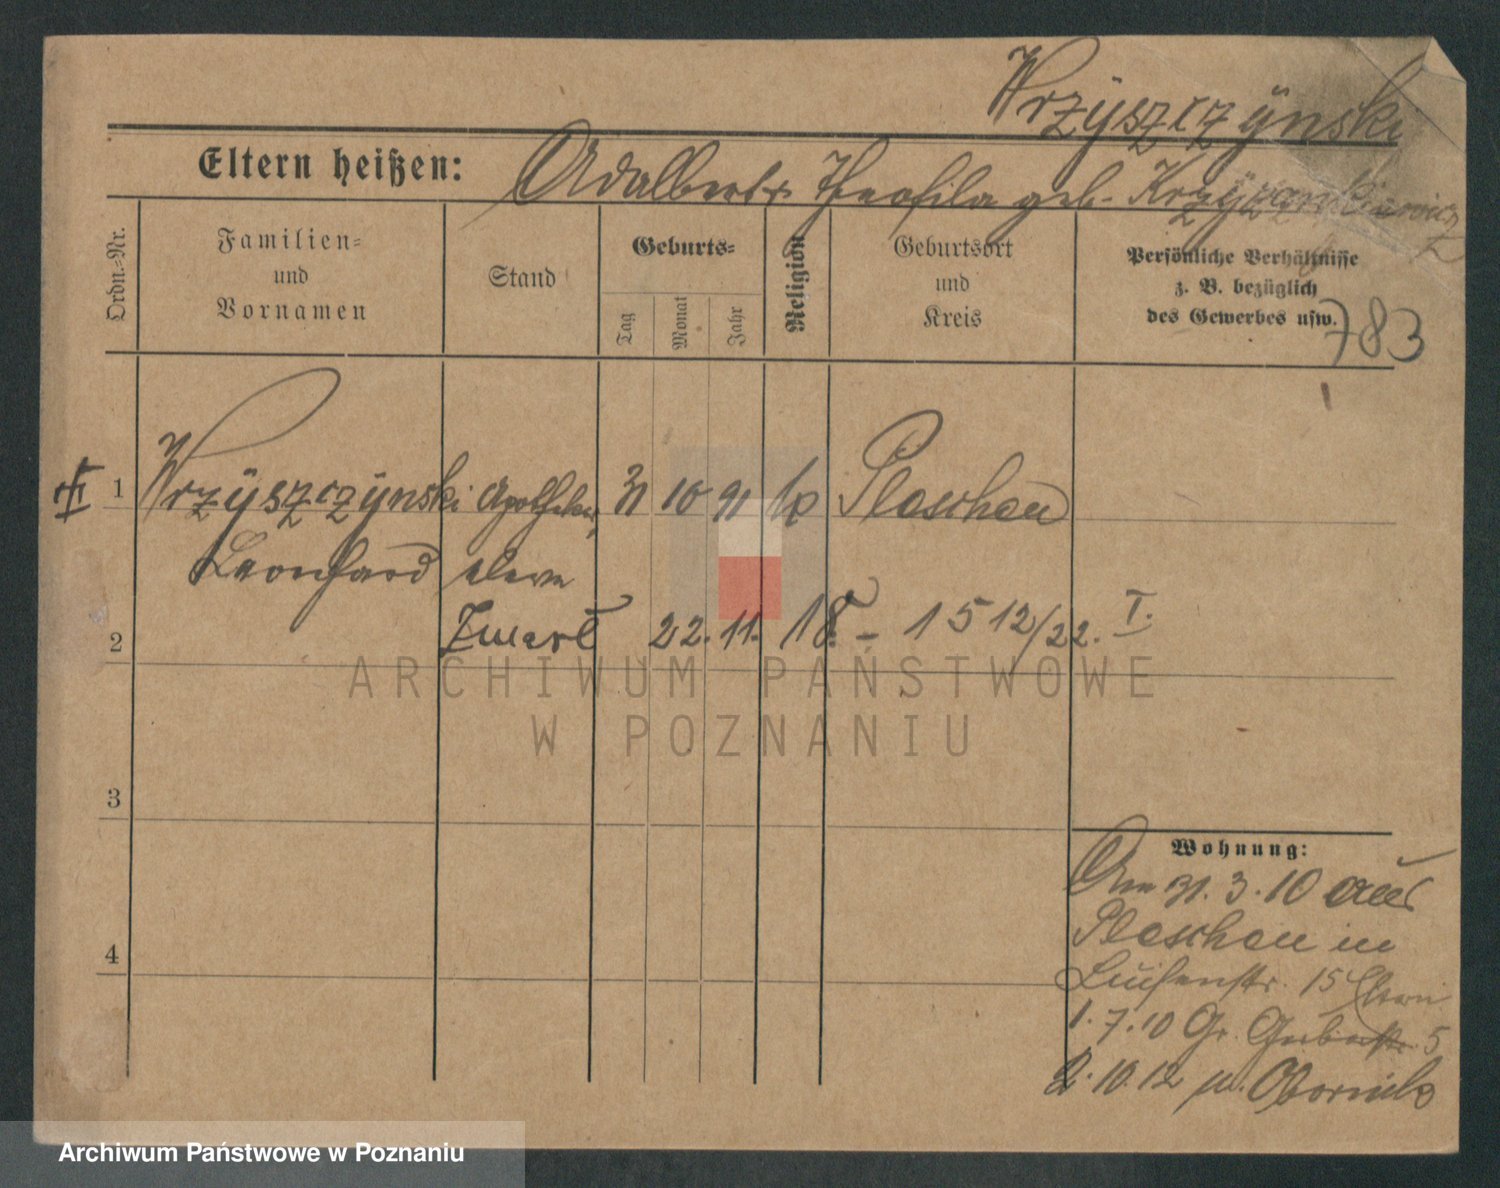 Wrzyszczynski
Eltern heißen: Adalbert u. Theofila geb. Krzyżankiewicz
Ordn.-Nr.
Familien-
und
Vornamen
Stand
Geburts-
Tag
Monat
Jahr
Religion
Geburtsort
und
Kreis
Persönliche Verhältnisse
z. B. bezüglich
des Gewerbes usw.
783
1 Wrzyszczynski Apotheker 31 10 91 k Pleschen
Leonhard eleve
2 Zmarł 22. 11. 18. – 1512/22. I.
3
4
Wohnung:
Am 31. 3. 10 aus
Pleschen in
Luisenstr. 15 Eltern
1. 7. 10 Gr. Gerberstr. 5
2. 10. 12 n. Obornik
ARCHIWUM PAŃSTWOWE
W POZNANIU
Archiwum Państwowe w Poznaniu